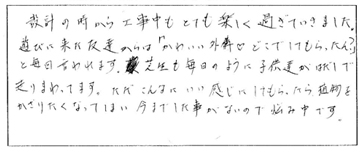 設計の時から工事中もとても楽しく過ぎていきました。
遊びに来た友達からは「かわいい外構せどこでしてもらったん?」
と毎日言われます。芝生も毎日のように子供達がはだしで
走りまわってます。ただこんなにいい感じにしてもらったら植物も
かざりたくなってしまい今までした事がないので悩み中です。